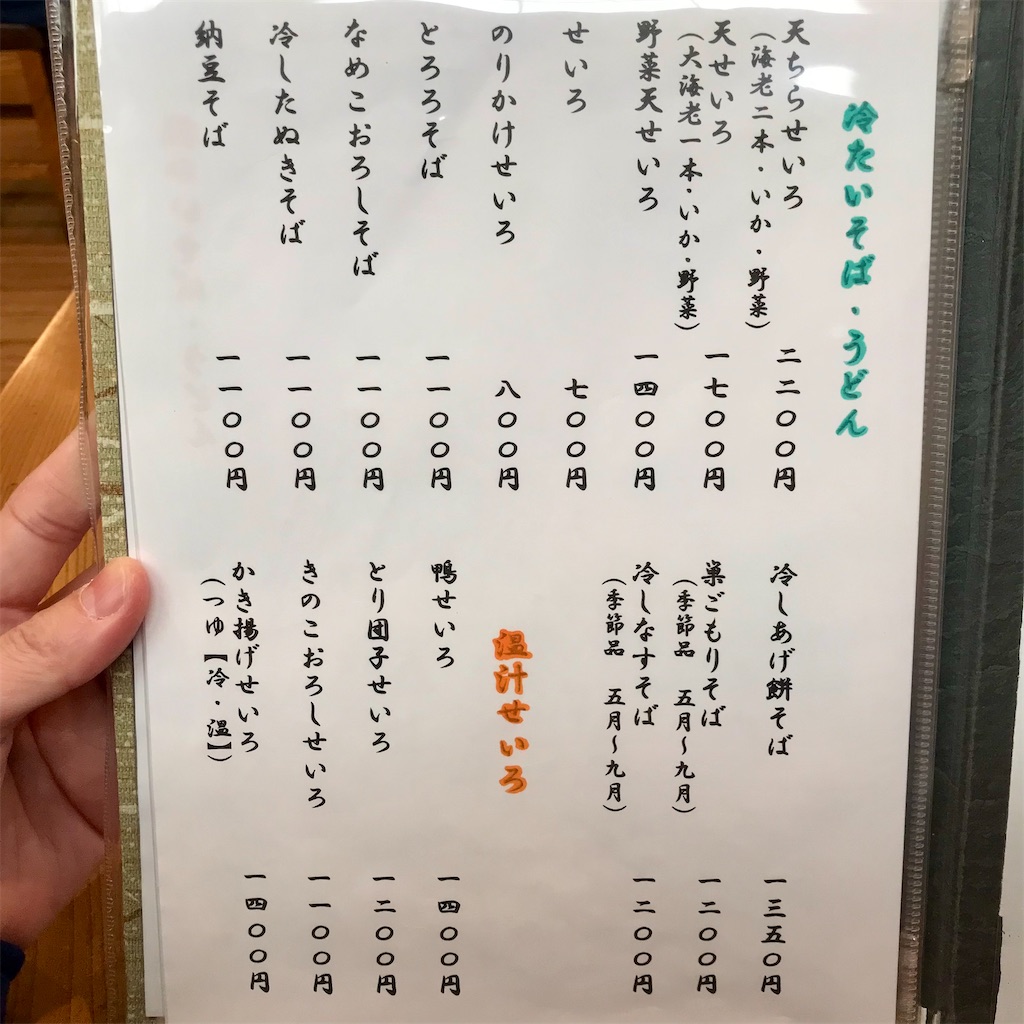 冷たいそば・うどん
天ちらせいろ
(海老二本・いか・野菜)
二二〇〇円
天せいろ
(大海老一本・いか・野菜)
一七〇〇円
野菜天せいろ
一四〇〇円
せいろ
七〇〇円
のりかけせいろ
八〇〇円
とろろそば
一一〇〇円
なめこおろしそば
一一〇〇円
冷したぬきそば
一一〇〇円
納豆そば
一一〇〇円
冷しあげ餅そば
一三五〇円
巣ごもりそば
(季節品 五月〜九月)
一二〇〇円
冷しなすそば
(季節品 五月〜九月)
一二〇〇円
温汁せいろ
鴨せいろ
一四〇〇円
とり団子せいろ
一二〇〇円
きのこおろしせいろ
一一〇〇円
かき揚げせいろ
(つゆ【冷・温】)
一四〇〇円